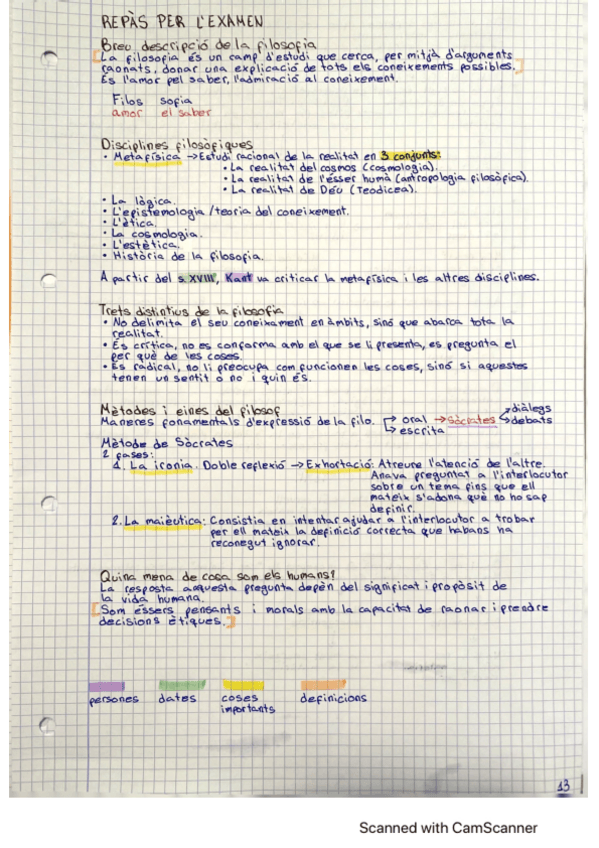 REPÀS PER L'EXAMEN
Breu descripció de la filosofia
La filosofia és un camp d'estudi que cerca, per mitjà d'arguments
raonats, donar una explicació de tots els coneixements possibles.
És l'amor pel saber, l'admiració al coneixement.
Filos sofia
amor el saber
Disciplines filosòfiques
• Metafísica → Estudi racional de la realitat en 3 conjunts:
• La realitat del cosmos (cosmologia).
• La realitat de l'ésser humà (antropologia filosòfica).
• La realitat de Déu (Teodicea).
• La lògica.
• L'epistemologia / teoria del coneixement.
• L'ètica.
• La cosmologia.
• L'estètica.
• Història de la filosofia.
A partir del s. XVIII, Kant va criticar la metafísica i les altres disciplines.
Trets distintius de la filosofia
• No delimita el seu coneixament en àmbits, sinó que abarca tota la
realitat.
• És crítica, no es conforma amb el que se li presenta, es pregunta el
per què de les coses.
• És radical, no li preocupa com funcionen les coses, sinó si aquestes
tenen un sentit o no i quin és.
Mètodes i eines del filosof
Maneres fonamentals d'expressió de la filo. → oral → Sòcrates → diàlegs
→ debats
→ escrita
Mètode de Sòcrates
2 fases:
1. La ironia. Doble reflexió → Exhortació: Atreure l'atenció de l'altre.
Anava preguntat a l'interlocutor
sobre un tema fins que ell
mateix s'adona què no ho sap
definir.
2. La maièutica: Consistia en intentar ajudar a l'interlocutor a trobar
per ell mateix la definició correcta que habans ha
reconegut ignorar.
Quina mena de cosa som els humans?
La resposta a aquesta pregunta depèn del significat i propòsit de
la vida humana.
Som éssers pensants i morals amb la capacitat de raonar i prendre
decisions ètiques.
persones dates coses importants definicions
13
Scanned with CamScanner